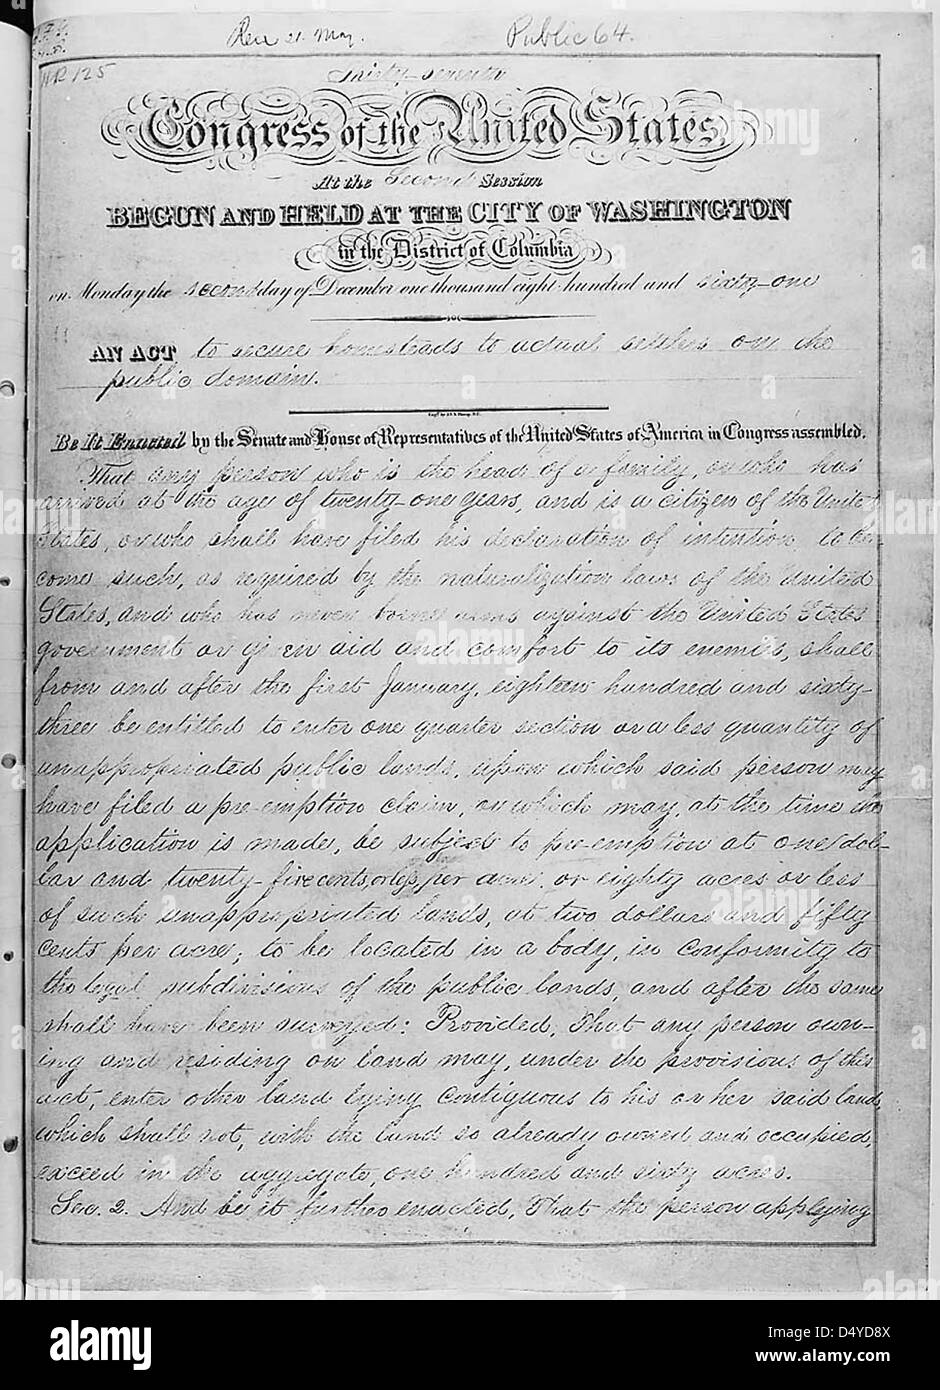 Rec 21. May.
Public 64.
HR 125
Thirty-seventh
Congress of the United States,
At the Second Session
BEGUN AND HELD AT THE CITY OF WASHINGTON
in the District of Columbia
on Monday the second day of December one thousand eight hundred and sixty-one
AN ACT to secure homesteads to actual settlers on the
public domain.
Be It Enacted by the Senate and House of Representatives of the United States of America in Congress assembled,
That any person who is the head of a family, or who has
arrived at the age of twenty-one years, and is a citizen of the United
States, or who shall have filed his declaration of intention to be-
come such, as required by the naturalization laws of the United
States, and who has never borne arms against the United States
government or given aid and comfort to its enemies, shall
from and after the first January, eighteen hundred and sixty-
three be entitled to enter one quarter section or a less quantity of
unappropriated public lands, upon which said person may
have filed a pre-emption claim, or which may, at the time the
application is made, be subject to pre-emption at one dol-
lar and twenty-five cents, or less, per acre; or eighty acres or less
of such unappropriated lands, at two dollars and fifty
cents per acre; to be located in a body, in conformity to
the legal subdivisions of the public lands, and after the same
shall have been surveyed: Provided, That any person own-
ing and residing on land may, under the provisions of this
act, enter other land lying contiguous to his or her said land,
which shall not, with the land so already owned and occupied,
exceed in the aggregate, one hundred and sixty acres.
Sec. 2. And be it further enacted, That the person applying
alamy
Image ID: D4YD8X
www.alamy.com